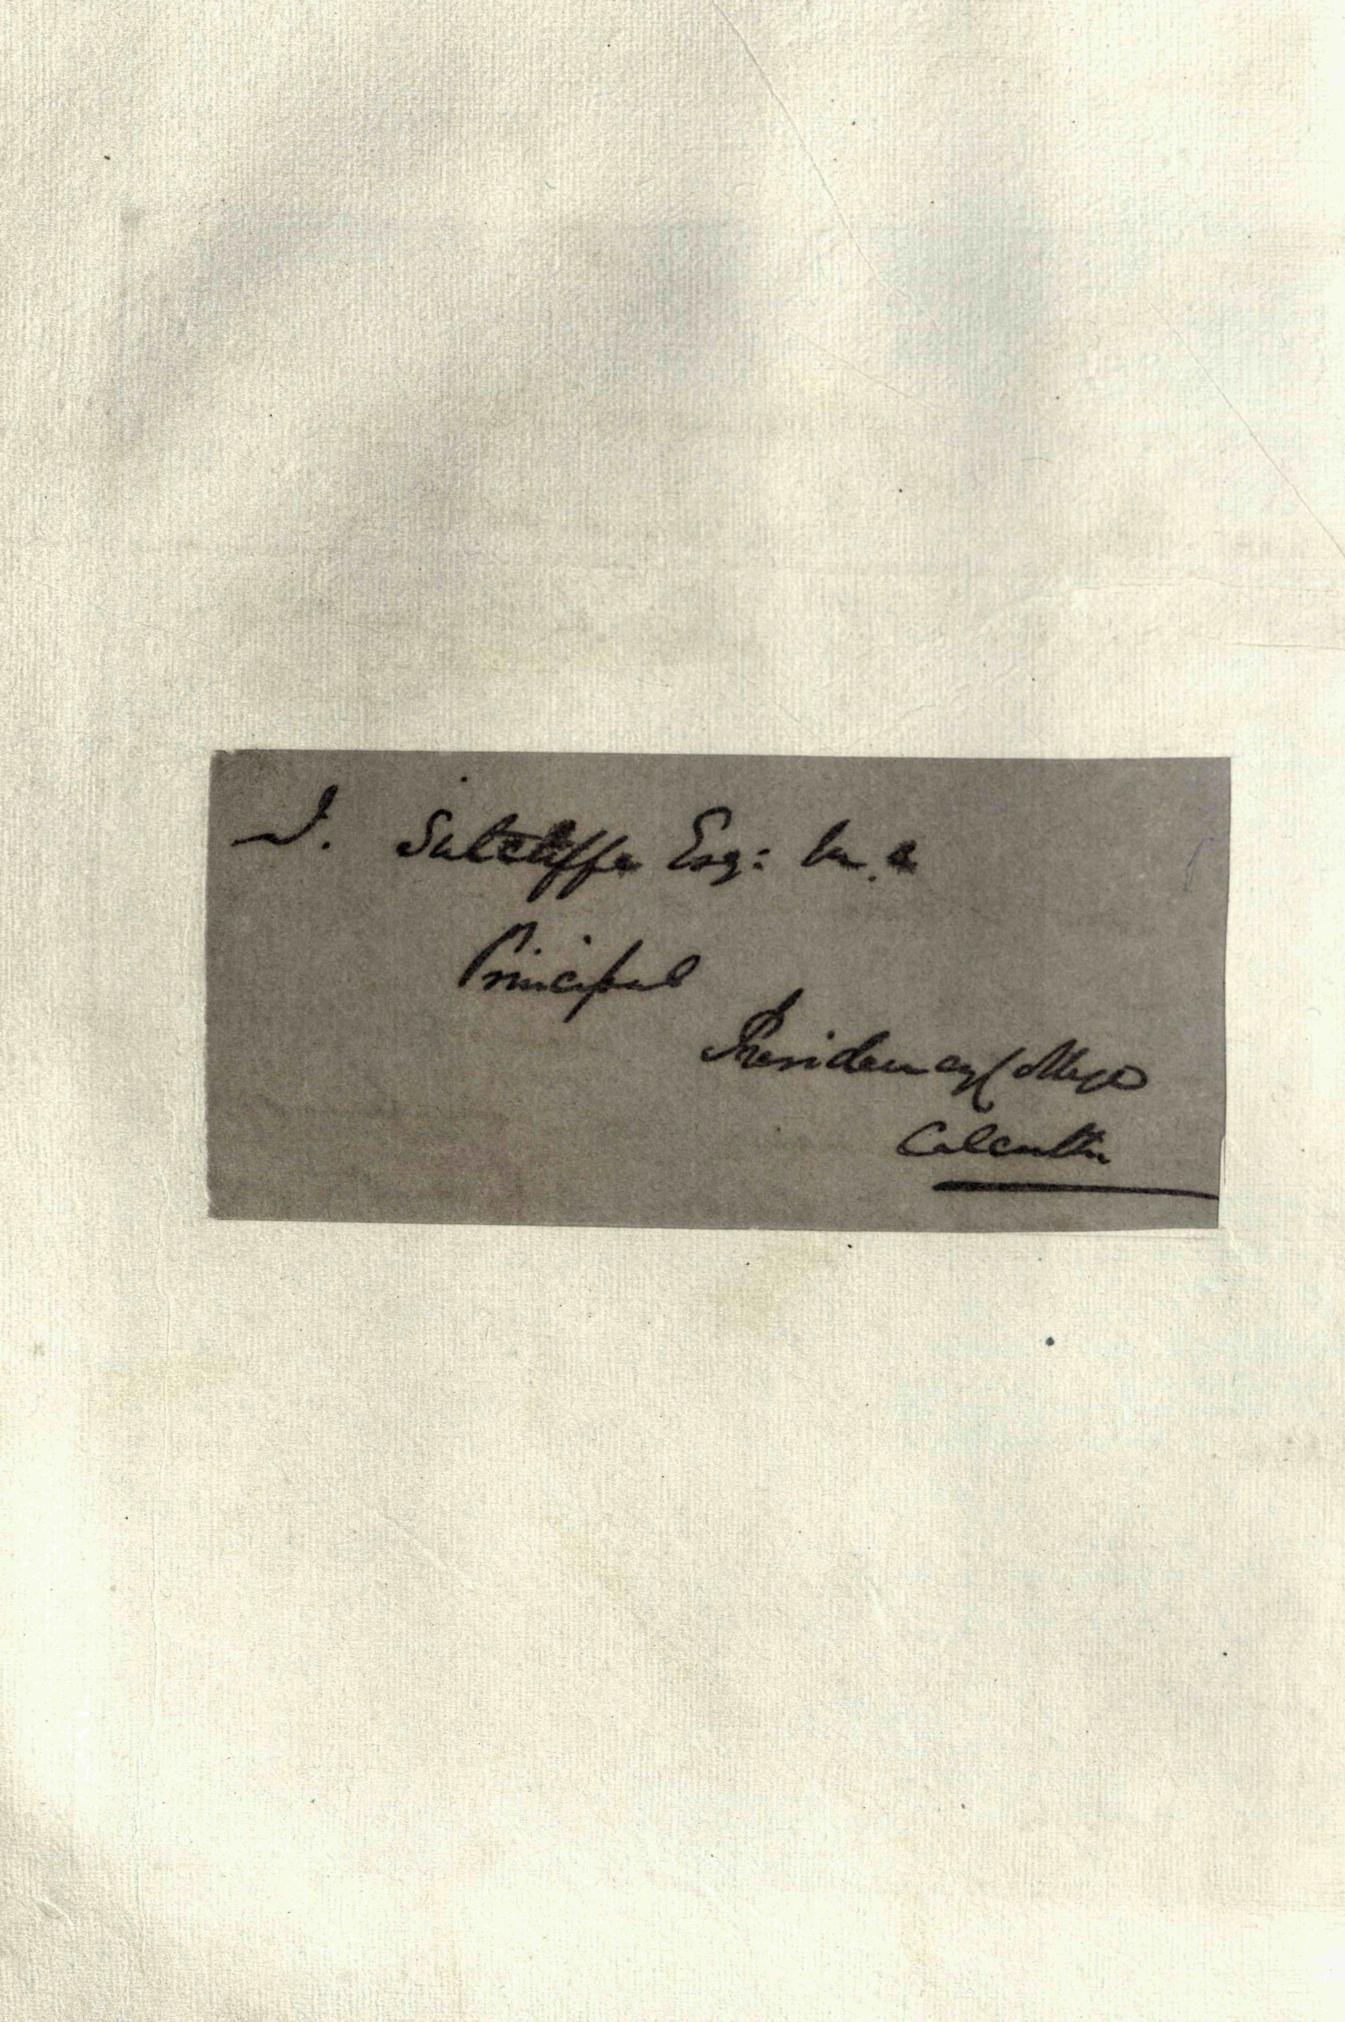 J. Sutcliffe Esq: M.A
Principal
Presidency College
Calcutta